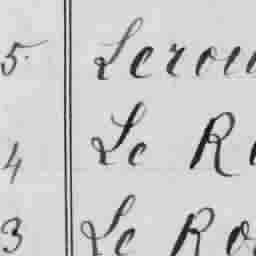 5. Lerou
4 Le R
3 Le Ro